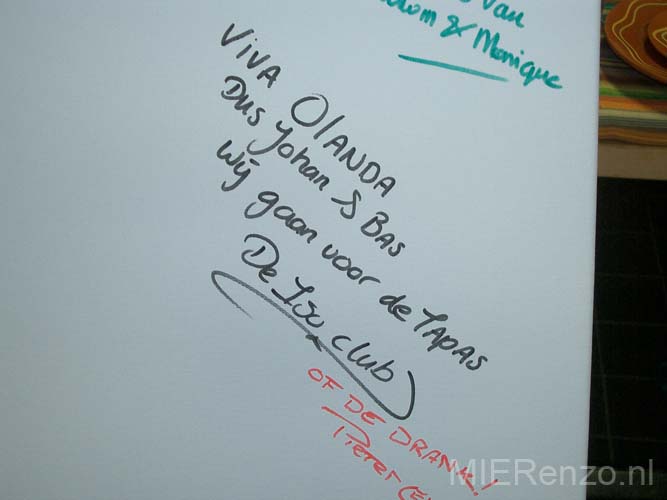 van
& Monique
VIVA OlANDA
Dus Yohan & BAS
Wij gaan voor de TAPAS
De club
OF DE DRANK!
PIETER
MIERenzo.nl